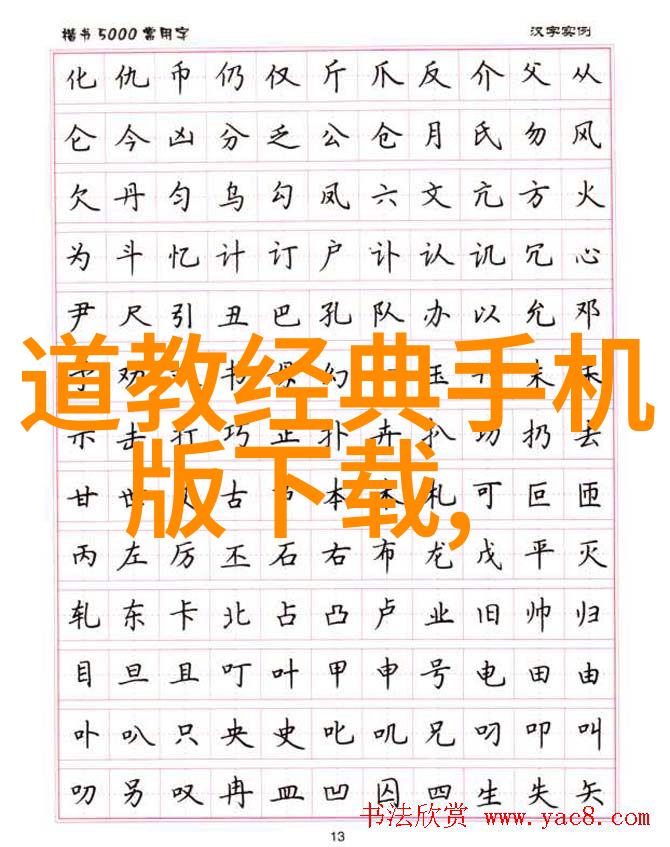 楷书5000常用字 汉字实例
化仇币仍仅斤爪反介父从
仑今凶分乏公仓月氏勿风
欠丹匀乌勾凤六文亢方火
为斗忆计订户讣认讥冗心
尹尺引丑巴孔队办以允邓
道教经典手机
版下载,
示击打巧正扑卉扒功扔去
甘世古本术札可叵匝
丙左厉丕石右布龙戊平灭
轧东卡北占凸卢业旧帅归
目旦且叮叶甲申号电田由
卟叭只央史叱叽兄叼叩叫
叨另叹冉皿凹囚四生失矢
书法欣赏 www.yac8.com
13